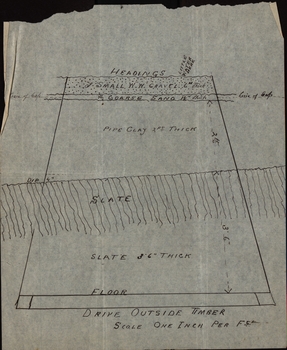 HEADINGS
SMALL W.W. GRAVEL 6" THICK
COARSE SAND THICK
Line of Caps
PIPE CLAY THICK
SLATE
3' 6"
SLATE 3' 6" THICK
FLOOR
DRIVE OUTSIDE TIMBER
SCALE ONE INCH PER Foot